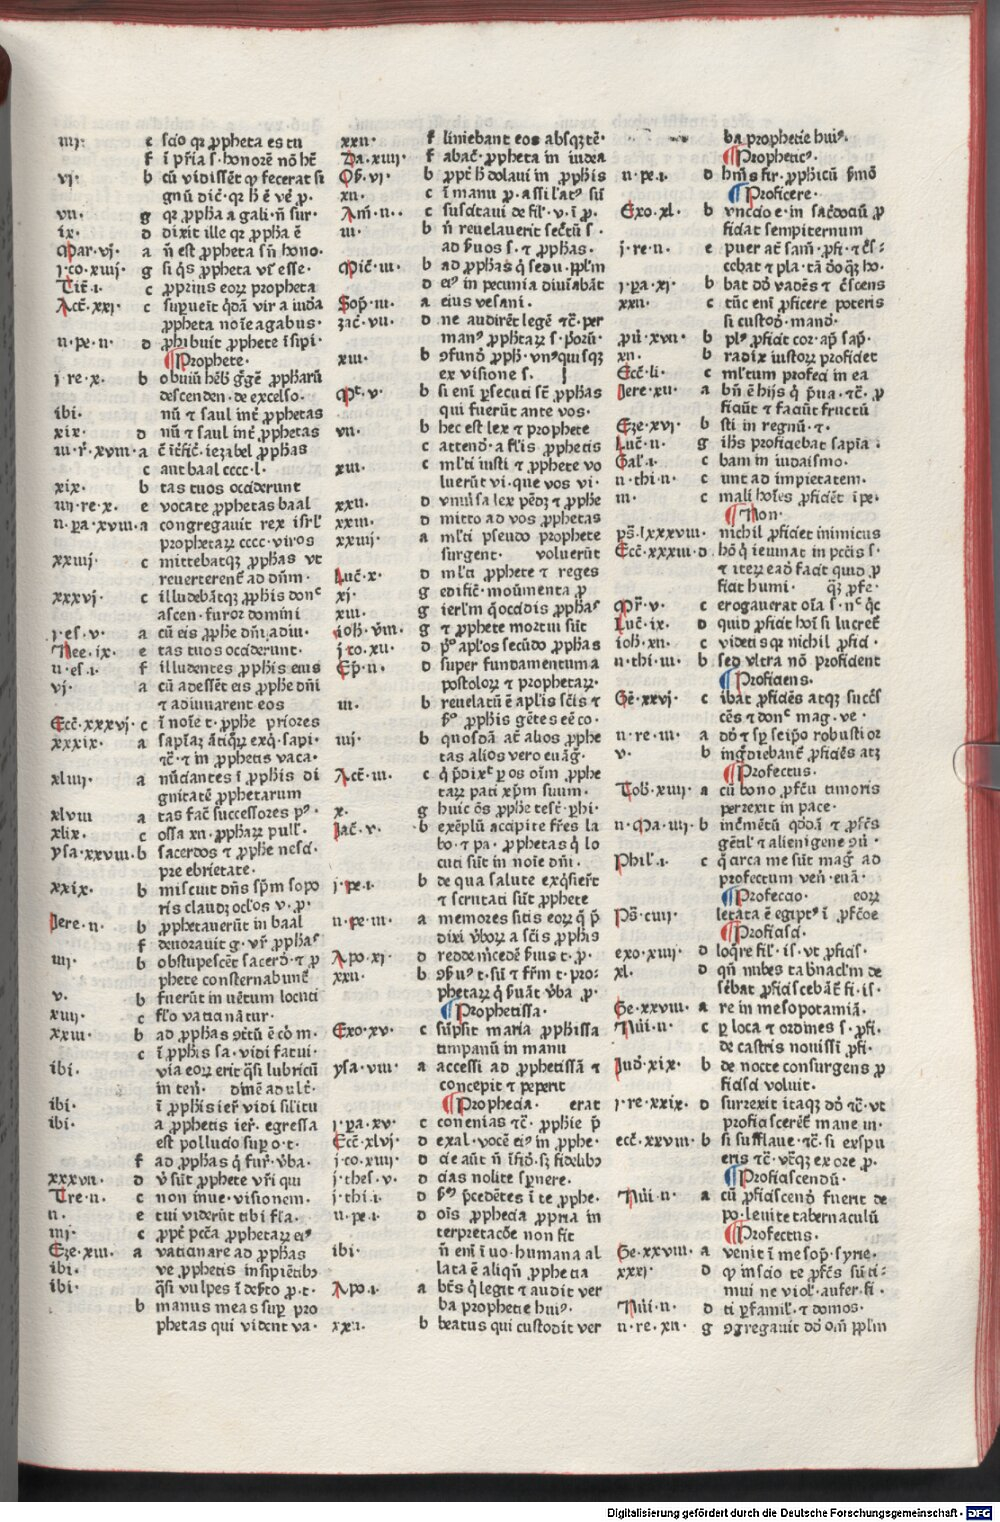 iiij· e scio qꝛ ꝓpheta es tu
f ī pr̄ia s· honorē nō hēt
vj· b cū vidissēt ꝙ fecerat si
gnū dic̄· qꝛ hˀ ē ve᷑ ꝓ·
vii· g qꝛ ꝓpha a gali· n̄ sur·
ix· d dixit ille qꝛ ꝓpha ē
Mar·vj· a n̄ est ꝓpheta sn̄ hono·
j·co·xiiij· g si q̇s ꝓpheta vr̄ esse·
Tit̄·i· c ꝓprius eoꝝ propheta
Act̄·xxj· c suꝑueīt q̇dā vir a iuda
ꝓpheta noīe agabus·
ii·pe·ii· d ꝓhibuit ꝓphete īsipi·
Prophete·
j·re·x· b obuiū hēb̄ g̊gē ꝓpharū
descenden·de excelso·
ibi· nū ⁊ saul int̄ ꝓphetas
xix· d nū ⁊ saul int̄ ꝓphetas
iii·r̄·xviii· a c̄ īt̄fic̄· iezabel ꝓphas
c aut baal cccc·l·
xix· b tas tuos occiderunt
iiij·re·x· e vocate ꝓphetas baal
ii·ꝑa·xviii· a congregauit rex isr̄l'
prophetaꝝ cccc·viros
xxiiij· c mittebatqꝫ ꝓphas vt
reuerterent̄ ad dn̄m·
xxxvj· c illudebātqꝫ ꝓphis donᶜ
ascen·furor domini
j·es·v· a cū eis ꝓphe dn̄i adiu·
Nee·ix· e tas tuos occiderunt·
ii·es·i· f illudentes ꝓphis eius
vj· a cū adessēt eis ꝓphe dn̄i
⁊ adiuuarent eos
Ecc̄·xxxvj· c ī noīe t· ꝓphe priores
xxxix· a sapīaꝫ ātiqꝝ exq̇·sapi·
⁊c̄·⁊ in ꝓphetis vaca·
xliiij· a nūciantes ī ꝓphis di
gnitatē ꝓphetarum
xlviii a tas fac̄ successores p⁹·
xlix· c ossa xii· ꝓphaꝝ pull'·
ysa·xxviii· b sacerdos ⁊ ꝓphe nesci·
pre ebrietate·
xxix· b miscuit dn̄s spm̄ sopo
ris claudꝫ oc̄los v·ꝓ·
Jere·ii· b ꝓphetauerūt in baal
f deuorauit g·vr̄ ꝓphaˢ
iiij· b obstupescēt sacerd̄·⁊ ꝓ
phete consternabunt̄
v· b fuerūt in uētum locuti
xiiij· c flo vaticinātur·
xxiii· b ad ꝓphas ꝯt̄tū ē cōm·
c ī ꝓphis sa·vidi fatui·
ibi· via eoꝝ erit q̊si lubricū
in ten̄· dīnē adult̄·
ibi· ī ꝓphis ier̄ vidi sīlitu
ibi· a ꝓphetis ier̄·egressa
est pollucio suꝑ o·t·
f ad ꝓphas q̇ fur̄·v̄ba·
xxxvii· d v̄ sūt ꝓphete vr̄i qui
Tre·ii· c non inue·visionem·
ii· e tui viderūt tibi fl̄a·
iiij· c ꝓpt̄ pc̄cā ꝓphetaꝝ ei⁹
Eze·xiii· a vaticinare ad ꝓphas
ibi· ve ꝓphetis insipiētibꝫ
ibi· q̊si vulpes ī des̄to ꝓ·t·
b manus meas suꝑ pro
phetas qui vident va·
xxii· f liniebant eos absqꝫ tē·
Da·xiiij· f abac̄·ꝓpheta in iudea
Os̄·vj· b ꝓpt̄ hˀ dolaui in ꝓphis
xii· c ī manu ꝓ·assil'atꝰ sū
Am̄·ii· c suscitaui de fil'·v·ī ꝓ·
iii· b n̄ reuelauerit sec̄tū s·
ad s̄uos s·⁊ ꝓphas·
Mic̄·iii· b ad ꝓphas q̇ sedu·pp̄l'm
d ei⁹ in pecunia diuīabāt
Sop̄·iii· a eius vesani·
zac̄·vii· d ne audirēt legē ⁊c̄·per
man⁹ ꝓphetaꝝ s·p̄orū·
xiii· b ꝯfund̄ ꝓph̄·vn⁹quisqꝫ
ex visione s·
Mt·v· b si enī ꝑsecuti st̄ ꝓphas
qui fuerūt ante vos·
vii· b hec est lex ⁊ prophete
c attend̄·a fl̄is ꝓphetis
xiii· c ml'ti iusti ⁊ ꝓphete vo
luerūt vi·que vos vi·
xxii· d vniūsa lex pēdꝫ ⁊ ꝓphe
xxiii· d mitto ad vos ꝓphetas
xxiiij· a ml'ti pseudo prophete
surgent· voluerūt
Luc̄·x· d ml'ti ꝓphete ⁊ reges
xj· g edific̄·moūmenta ꝓ
xiii· g ierl'm q̄ occidis ꝓphaˢ
ioh̄·viii· g ⁊ ꝓphete mortui sūt
j·co·xii· d p̄⁹ apl'os secūdo ꝓphas
Ep̄·ii· d super fundamentum a
postoloꝝ ⁊ prophetaꝝ·
iii· b reuelatū ē apl'is sc̄is ⁊
p̄⁹ ꝓphis gētes eē co·
iiij· b quosdā at̄ alios ꝓphe
tas alios vero euāḡ·
Act̄·iii· c q̄ p̄dixᵗ ꝑ os oīm ꝓphe
taꝝ pati xp̄m suum·
x· g huic ōs ꝓphe test̄·ꝑhi·
Jac̄·v· b exēplū accipite fr̄es la
bo·⁊ pa·ꝓphetas q̇ lo
cuti sūt in noīe dn̄i·
j·pe·i· b de qua salute exq̇sier̄t
⁊ scrutati sūt ꝓphete
ii·pe·iii· a memores sitis eoꝝ q̄ p̄
dixi v̄boꝝ a sc̄is ꝓphis
Apo·xj· d redde m̄cedē s̄uis t·ꝓ·
xxii· b ꝯs̄u⁹ t·sū ⁊ fr̄m t·pro-
phetaꝝ q̇ s̄uāt v̄ba ꝓ·
Prophetissa·
Exo·xv· c sūpsit maria ꝓphissa
timpanū in manu
ysa·viii· a accessi ad ꝓphetissā ⁊
concepit ⁊ peperit
Prophecia· erat
j·ꝑa·xv· c conenias ⁊c̄·ꝓphie p̄
Ecc̄·xlvj· d exal·vocē ei⁹ in ꝓphe·
j·co·xiiij· d cie aūt n̄ īfid̄·sꝫ fidelibꝫ
j·thes·v· d cias nolite sꝑnere·
j·thi·i· d p̄⁹ p̄cedētes ī te ꝓphe·
ii·pe·i· d oīs ꝓphecia ꝓpria in
terpretacōe non fit
ibi· n̄ enī ī uo·humana al
lata ē aliqn̄ ꝓphecia
Apo·i· a btūs q̇ legit ⁊ audit ver
ba prophetie hui⁹·
xxii· b beatus qui custodit ver
ba prophetie hui⁹·
Propheticꝰ·
ii·pe·i· d hm̄s fir·ꝓphicū s̄mō
Proficere·
Exo·xl· b vnccio e·in sac̄dociū ꝓ
ficiat sempiternum
j·re·ii· e puer at̄ sam̄·ꝓfi·⁊ c̄s·
ccbat ⁊ pla·tā dō q̊ꝫ ho·
j·ꝑa·xj· b bat dō vadēs ⁊ c̄scens
xxii· c tūc enī ꝓficere poteris
si custod̄·mand̄·
pū·xvii· b pl⁹ ꝓficit cor·ap̄ sap̄·
xii· b radix iustoꝝ proficiet
Ecc̄·li· c ml'tum profeci in ea
Jere·xii· a bn̄ ē hijs q̇ p̄ua·⁊c̄·ꝓ
ficiūt ⁊ faciūt fructū
Eze·xvj· b sti in regnū·⁊·
Luc̄·ii· g ih̄s proficiebat sapīa·
Gal'·i· c bam in iudaismo·
ii·thi·ii· c unt ad impietatem·
iii· c mali hoīes ꝓficiēt ī pe·
Non·
ps̄·lxxxviii· nichil ꝓficiet inimicus
Ecc̄·xxxiiii· d hō q̇ ieiunat in pc̄cis s·
⁊ iteꝝ eadē facit quid ꝓ
ficiat humi· q̄ꝫ ꝓfe·
Mr̄·v· c erogauerat oīa s·nᶜ q̇c
Luc̄·ix· d quid ꝓficiat hoī si lucret̄
ioh̄·xii· c videtis qꝛ nichil ꝓfici·
ii·thi·iii· b sed vltra nō proficient
Proficiens·
Ge᷑·xxvj· c ibat ꝓficiēs atqꝫ succ̄s
cēs ⁊ donᶜ mag·ve·
ii·re·iii· a dō ⁊ sp̄ seip̄o robustior
v· b ing̊diebant̄ ꝓficiēs atꝫ
Profectus·
Tob̄·xiiij· a cū bono ꝓfc̄u timoris
perrexit in pace·
ii·Ma·iiij· b inc̄mētū qd̄dā ⁊ ꝓfc̄s
gētil' ⁊ alienigene ꝯu·
Phil'·i· c q̄ circa me sūt mag̊ ad
profectum ven̄·euā·
Profeccio· eoꝝ
Ps̄·ciiij· letata ē egipt⁹ ī ꝓfc̄ōe
Proficisci·
exo·xiiij· d loq̄re fil'·is·vt ꝓficis·
xl· d qn̄ nubes tab̄nacl'm de
sēbat ꝓficiscebāt̄ fi·is·
Ge·xxviii· a re in mesopotamiā·
Nūi·ii· c ꝑ loca ⁊ ordines s·ꝓfi·
de castris nouissī ꝓfi·
Jud̄·xix· b de nocte consurgens ꝓ
ficisci voluit·
j·re·xxix· d surrexit itaqꝫ dō ⁊c̄·vt
proficiscerēt̄ mane in·
ecc̄·xxviii· b si sufflaue·⁊c̄·si exspu
eris ⁊c̄·vt̄qꝫ ex ore ꝓ·
Proficiscendū·
Nūi·ii· a cū ꝓficiscend̄ fuerit de
po·leuite tabernaculū
Profectus·
Ge·xxviii· a venit ī mesop̄·syrie·
xxxj· d ꝙ īnscio te ꝓfc̄s sū ti-
mui ne viol'·aufer·fi·
Nūi·ii· d ti ꝑ famil'·⁊ domos·
ii·re·xii· g ꝯgregauit dō om̄ pp̄l'm
Digitalisierung gefördert durch die Deutsche Forschungsgemeinschaft - DFG